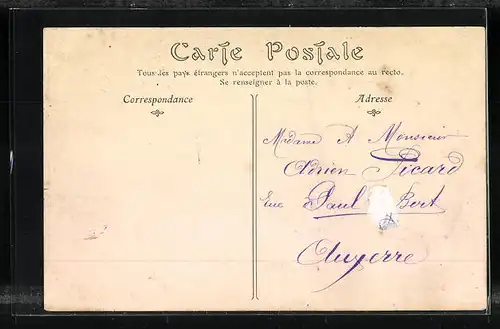 Carte Postale
Tous les pays étrangers n'acceptent pas la correspondance au recto.
Se renseigner à la poste.
Correspondance
Adresse
Madame & Monsieur
Adrien Picard
rue Paul Bert
Auxerre